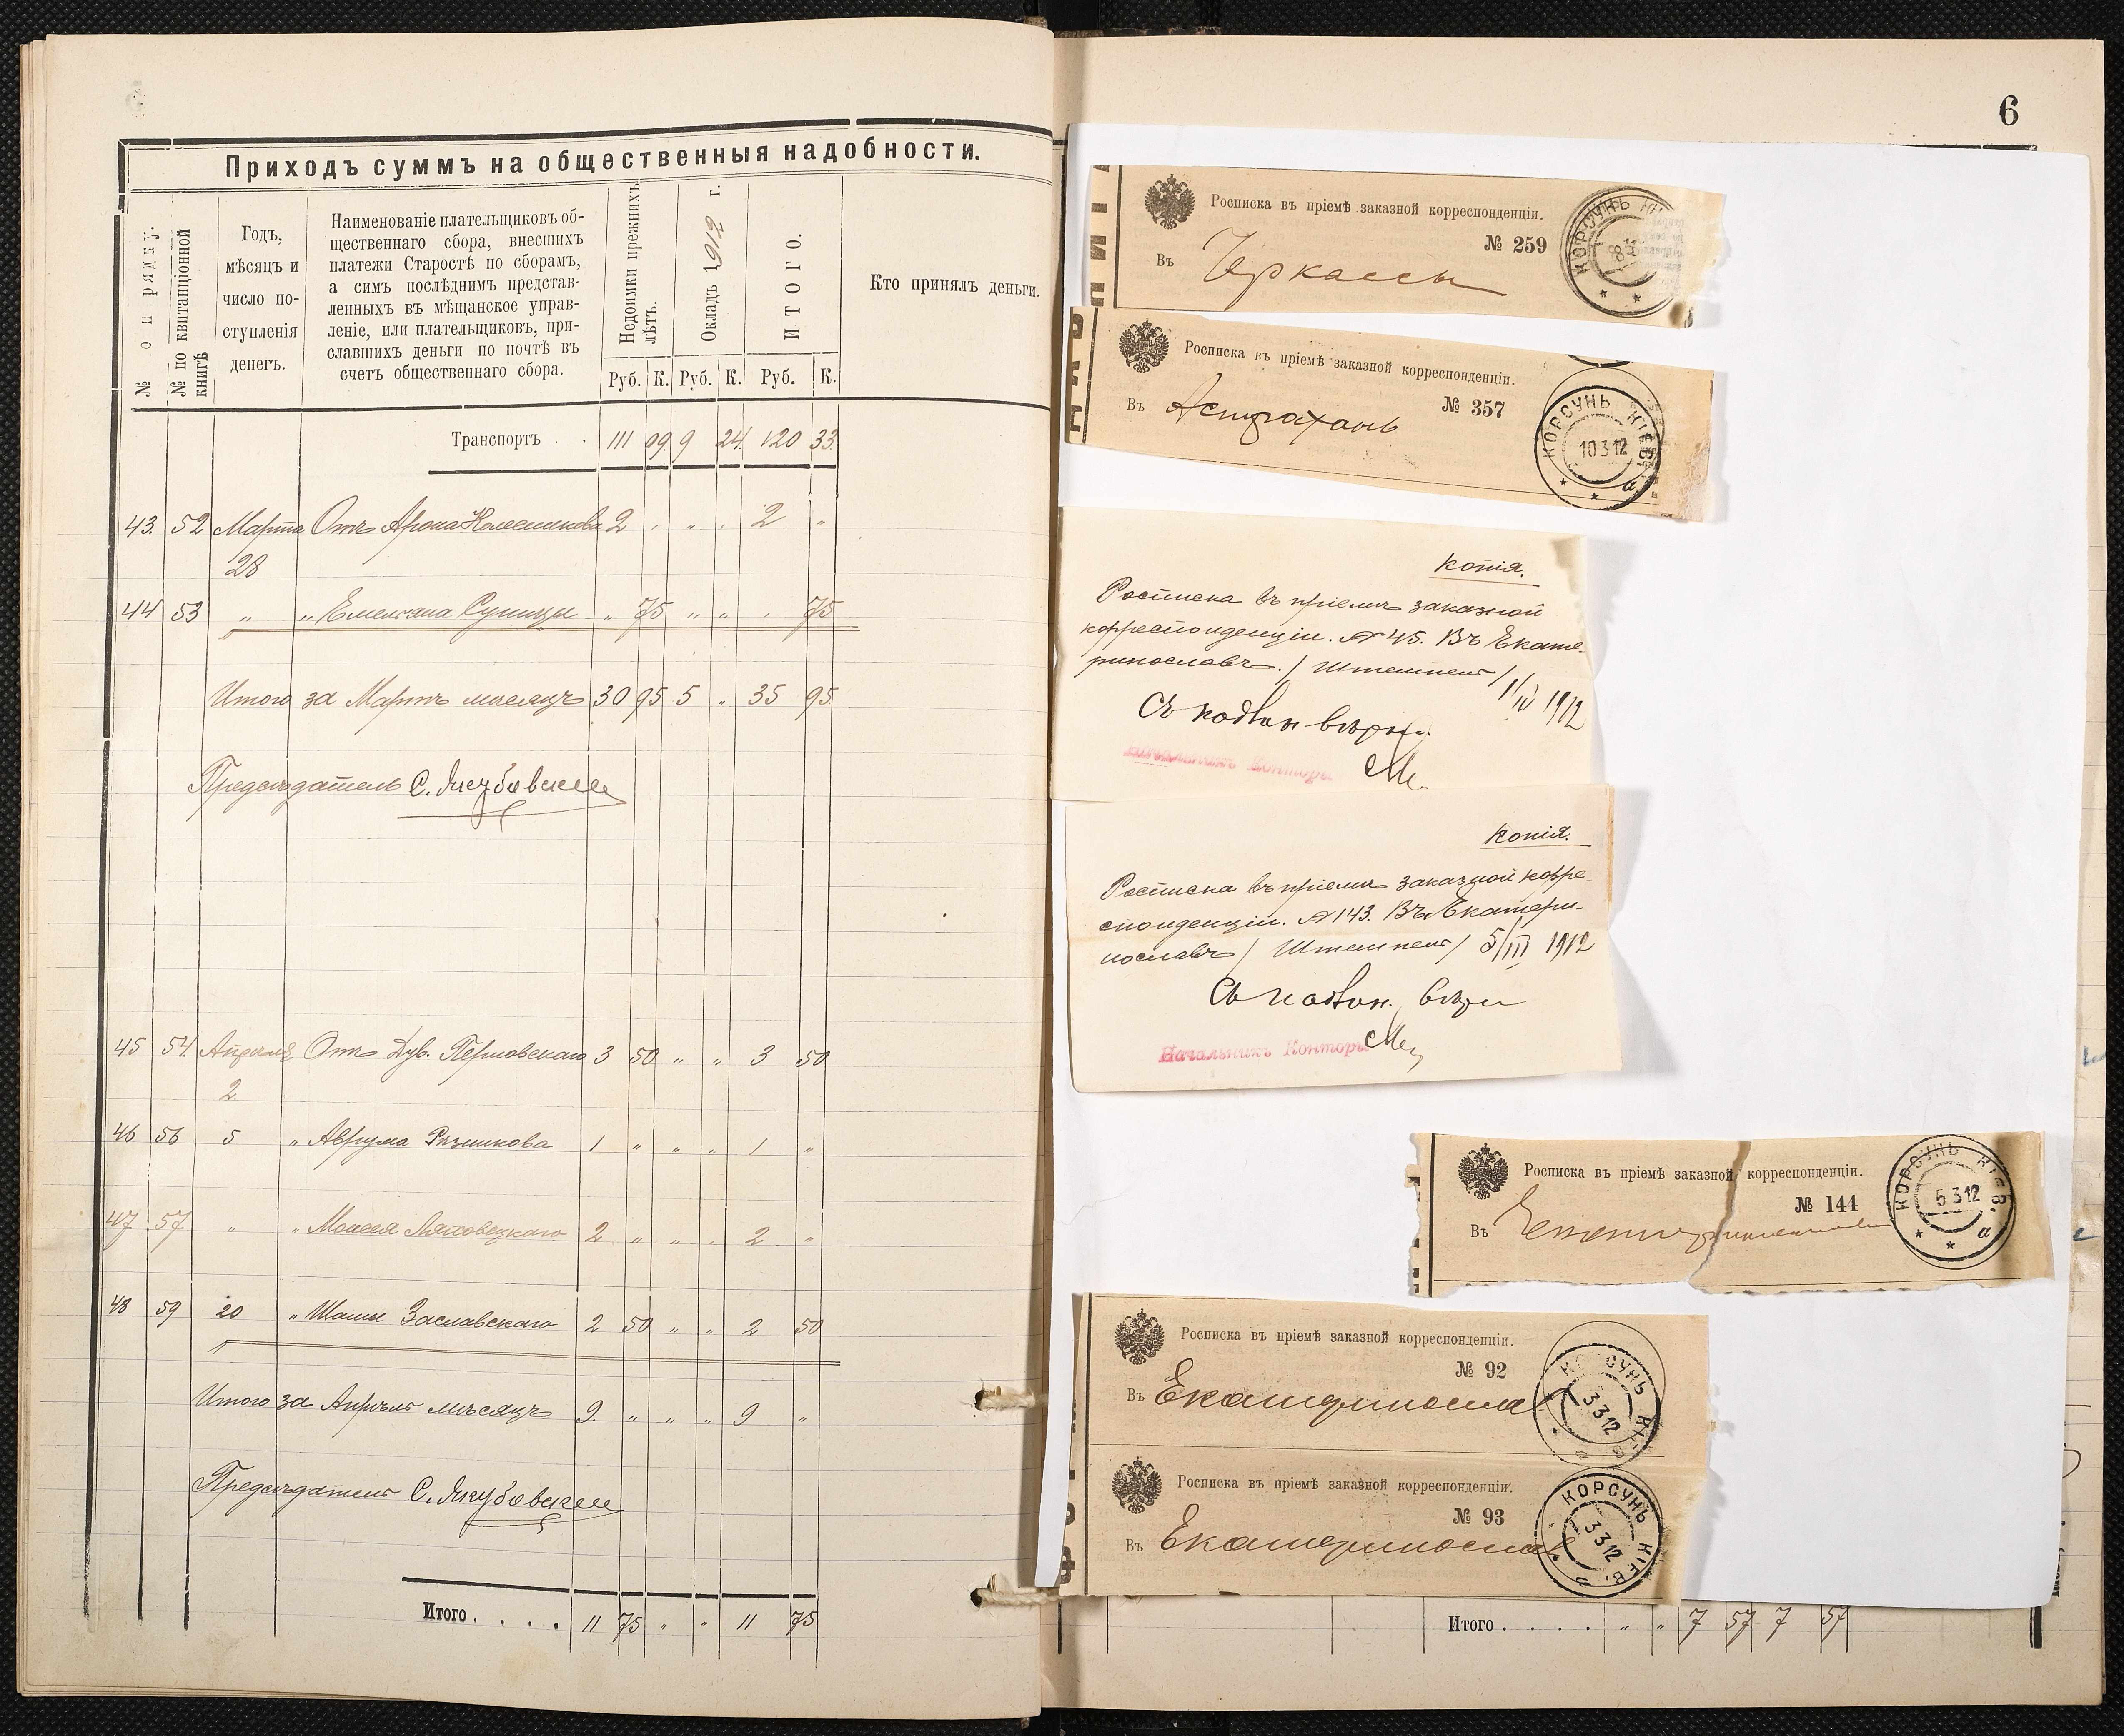 Приходъ суммъ на общественныя надобности.
№ по ряду.
№ по квитанціонной книгѣ
Годъ,
мѣсяцъ и
число по-
ступленія
денегъ.
Наименованіе плательщиковъ об-
щественнаго сбора, внесшихъ
платежи Старостѣ по сборамъ,
а симъ послѣднимъ представ-
ленныхъ въ мѣщанское управ-
леніе, или плательщиковъ, при-
славшихъ деньги по почтѣ въ
счетъ общественнаго сбора.
Недоимки прежнихъ лѣтъ.
Окладъ 1912 г.
ИТОГО.
Кто принялъ деньги.
Руб. К. Руб. К. Руб. К.
Транспортъ . . 111 09 9 24 120 33
43. 52 Марта Отъ Арона Колесникова 2 " " " 2 "
28
44 53 " " Емельяна Супицы " 75 " " " 75
Итого за Мартъ мѣсяцъ 30 95 5 " 35 95
Предсѣдатель С. Якубовскій
45 54 Апрѣля Отъ Дув. Перновскаго 3 50 " " 3 50
2
46 56 5 " Аврума Рѣзникова 1 " " " 1 "
47 57 " " Моисея Ляховецкаго 2 " " " 2 "
48 59 20 " Шаи Заславскаго 2 50 " " 2 50
Итого за Апрѣль мѣсяцъ 9. " " " 9 "
Предсѣдатель С. Якубовскій
Итого . . . . 11 75 " " 11 75
6
Росписка въ пріемѣ заказной корреспонденціи.
№ 259
Въ Черкассы
КОРСУНЬ
Росписка въ пріемѣ заказной корреспонденціи.
№ 357
Въ Астрахань
КОРСУНЬ КІЕВ. а
10 3 12
Копія.
Росписка въ пріемѣ заказной
корреспонденціи. № 45. Въ Екате-
ринославъ. / Штемпель /
1/IV 1912
Съ подлин. вѣрн.
Начальникъ Конторы
Копія.
Росписка въ пріемѣ заказной корре-
спонденціи. № 143. Въ Екатери-
нославъ / Штемпель / 5/III 1912
Съ подлин. вѣрн
Начальникъ Конторы
Росписка въ пріемѣ заказной корреспонденціи.
№ 144
Въ Екатеринославъ
КОРСУНЬ КІЕВ. а
5 3 12
Росписка въ пріемѣ заказной корреспонденціи.
№ 92
Въ Екатеринослав
КОРСУНЬ КІЕВ. а
3 3 12
Росписка въ пріемѣ заказной корреспонденціи.
№ 93
Въ Екатеринослав
КОРСУНЬ КІЕВ. а
3 3 12
Итого . . . . . " " 7 57 7 57